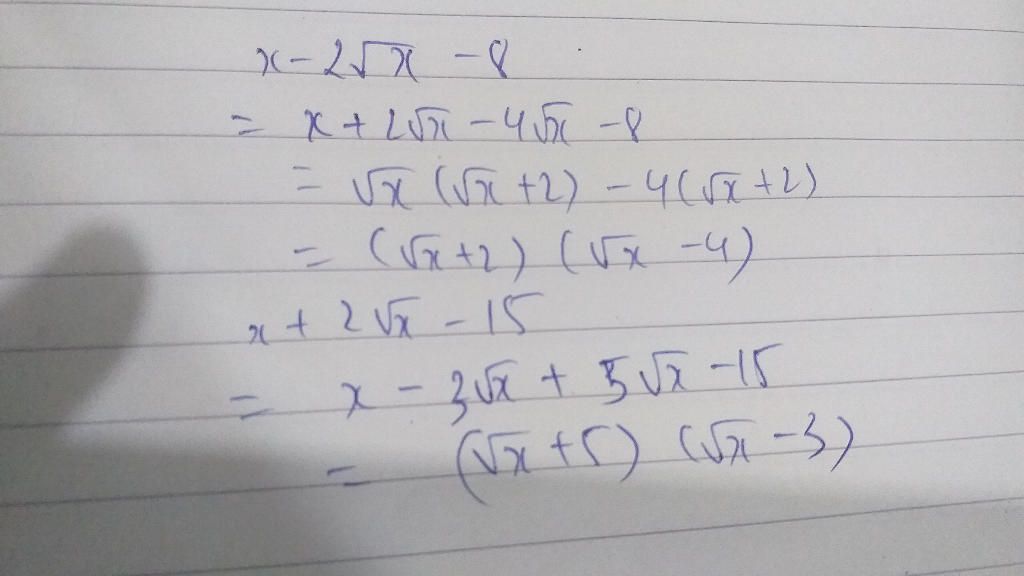 x - 2√x - 8
= x + 2√x - 4√x - 8
= √x (√x + 2) - 4(√x + 2)
= (√x + 2) (√x - 4)
x + 2√x - 15
= x - 3√x + 5√x - 15
= (√x + 5) (√x - 3)